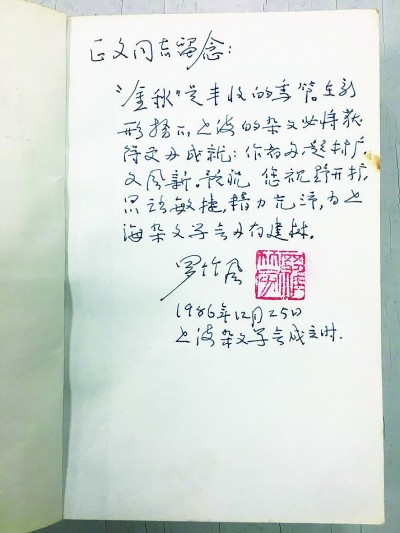 正文同志留念：
“金秋”是丰收的季节。在新
形势下，上海的杂文必将获
得更大成就：作者多，题材广，
文风新。预祝 您视野开扩，
思路敏捷，精力充沛，为上
海杂文学会多有建树。
罗竹风
1986年12月25日
上海杂文学会成立时.